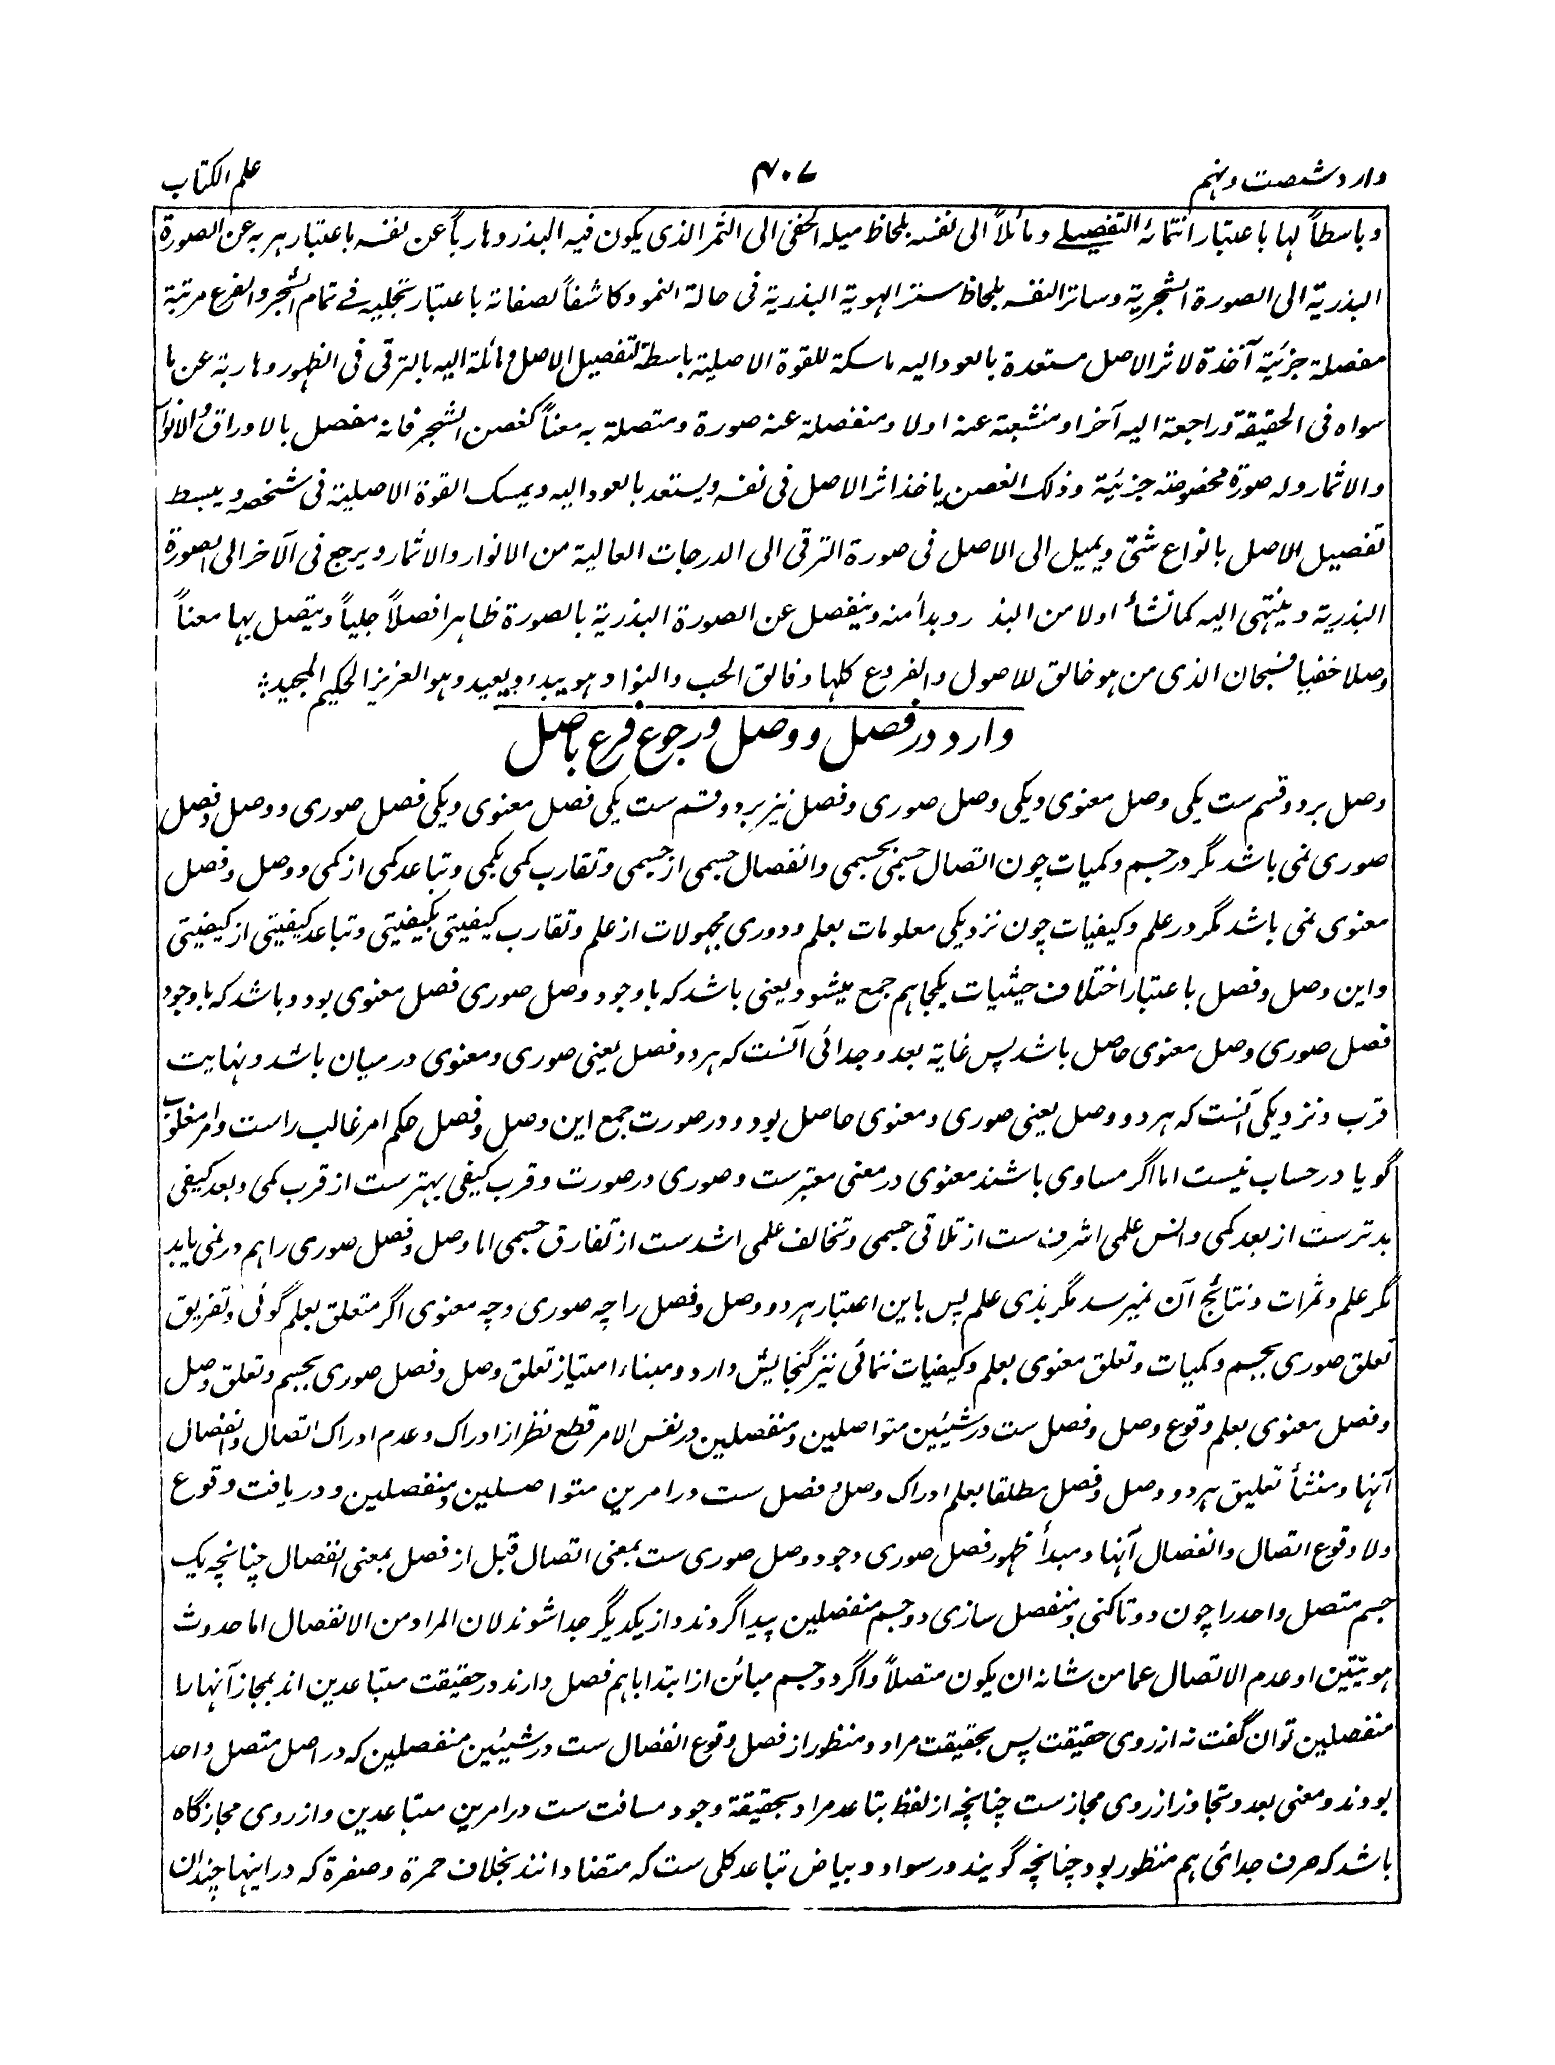 وارد شصت و نهم
۴۰۷
علم الکتاب
و باسطاً لہا باعتبار انتمائہ التفصیلے و مائلاً الی نفسہ بلحاظ میلہ الخفی الی الثمر الذی یکون فیہ البذر و ہارباً عن نفسہ باعتبار ہربہ عن الصورۃ
البذریۃ الی الصورۃ الشجریۃ و ساتراً لنفسہ بلحاظ ستر الہویۃ البذریۃ فی حالۃ النمو و کاشفاً لصفاتہ باعتبار تجلیہ فے تمام الشجر و الفرع مرتبۃ
مفصلۃ جزئیۃ آخذۃ لاثر الاصل مستعدۃ بالعود الیہ ماسکۃ للقوۃ الاصلیۃ باسطۃ لتفصیل الاصل و مائلۃ الیہ بالترقی فی الظہور و ہاربۃ عن ما
سواہ فی الحقیقۃ و راجعۃ الیہ آخرا و منشعبۃ عنہ اولا و منفصلۃ عنہ صورۃ و متصلۃ بہ معناً کغصن الشجر فانہ مفصل بالاوراق و الانوار
و الاثمار و لہ صورۃ مخصوصۃ جزئیۃ و ذلک الغصن یاخذ اثر الاصل فی نفسہ و یستعد بالعود الیہ و یمسک القوۃ الاصلیۃ فی شخصہ و یبسط
تفصیل الاصل بانواع شتی و یمیل الی الاصل فی صورۃ الترقی الی الدرجات العالیۃ من الانوار و الاثمار و یرجع فی الآخر الی الصورۃ
البذریۃ و ینتہی الیہ کما نشأ اولا من البذر و بدأ منہ و ینفصل عن الصورۃ البذریۃ بالصورۃ ظاہرا فصلاً جلیاً و یتصل بہا معناً
وصلا خفیا فسبحان الذی من ہو خالق للاصول و الفروع کلہا و فالق الحب و النوا و ہو یبدء و یعید و ہو العزیز الحکیم المجید
وارد در فصل و وصل و رجوع فرع باصل
وصل بر دو قسم ست یکی وصل معنوی و یکی وصل صوری و فصل نیز بر دو قسم ست یکی فصل معنوی و یکی فصل صوری و وصل و فصل
صوری نمی باشد مگر در جسم و کمیات چون اتصال جسمی بجسمی و انفصال جسمی از جسمی و تقارب کمی بکمی و تباعد کمی از کمی و وصل و فصل
معنوی نمی باشد مگر در علم و کیفیات چون نزدیکی معلومات بعلم و دوری مجہولات از علم و تقارب کیفیتی بکیفیتی و تباعد کیفیتی از کیفیتی
و این وصل و فصل باعتبار اختلاف حیثیات یکجا ہم جمع میشود یعنی باشد کہ باوجود وصل صوری فصل معنوی بود و باشد کہ باوجود
فصل صوری وصل معنوی حاصل باشد پس غایۃ بعد و جدائی آنست کہ ہر دو فصل یعنی صوری و معنوی درمیان باشد و نہایت
قرب و نزدیکی آنست کہ ہر دو وصل یعنی صوری و معنوی حاصل بود و در صورت جمع این وصل و فصل حکم امر غالب راست و امر مغلوب
گویا در حساب نیست اما اگر مساوی باشند معنوی در معنی معتبرست و صوری در صورت و قرب کیفی بہترست از قرب کمی و بعد کیفی
بدترست از بعد کمی و انس علمی اشرف ست از تلاقی جسمی و تخالف علمی اشدست از تفارق جسمی اما وصل و فصل صوری را ہم در نمی یابد
مگر علم و ثمرات و نتائج آن نمیرسد مگر بذی علم پس باین اعتبار ہر دو وصل و فصل را چہ صوری و چہ معنوی اگر متعلق بعلم گوئی و تفریق
تعلق صوری بجسم و کمیات و تعلق معنوی بعلم و کیفیات ننمائی نیز گنجایش دارد و مبناء امتیاز تعلق وصل و فصل صوری بجسم و تعلق وصل
و فصل معنوی بعلم وقوع وصل و فصل ست در شیئین متواصلین و منفصلین در نفس الامر قطع نظر از ادراک و عدم ادراک اتصال و انفصال
آنہا و منشأ تعلیق ہر دو وصل و فصل مطلقا بعلم ادراک وصل و فصل ست در امرین متواصلین و منفصلین و دریافت وقوع
و لا وقوع اتصال و انفصال آنہا و مبدأ ظہور فصل صوری وجود وصل صوری ست بمعنی اتصال قبل از فصل بمعنی انفصال چنانچہ یک
جسم متصل واحد را چون دوتا کنی و منفصل سازی دو جسم منفصلین پیدا گردند و از یکدیگر جدا شوند لان المراد من الانفصال اما حدوث
ہویتین او عدم الاتصال عما من شانہ ان یکون متصلاً و اگر دو جسم مبائن از ابتدا باہم فصل دارند در حقیقت متباعدین اند بمجاز آنہا را
منفصلین توان گفت نہ از روی حقیقت پس بحقیقت مراد و منظور از فصل وقوع انفصال ست در شیئین منفصلین کہ در اصل متصل واحد
بودند و معنی بعد و تجاوز از روی مجازست چنانچہ از لفظ تباعد مراد بحقیقۃ وجود مسافت ست در امرین متباعدین و از روی مجاز گاہ
باشد کہ صرف جدائی ہم منظور بود چنانچہ گویند در سواد و بیاض تباعد کلی ست کہ متضادانند بخلاف حمرۃ و صفرۃ کہ در اینہا چندان